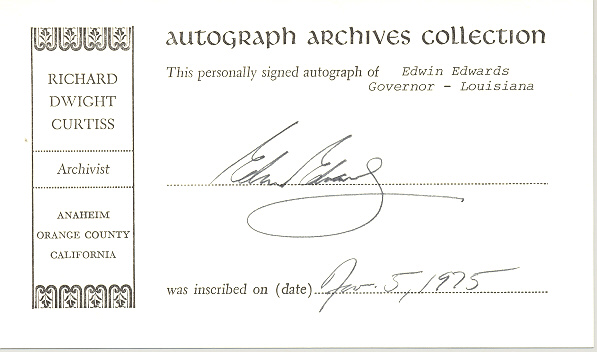 AUTOGRAPH ARCHIVES COLLECTION
RICHARD
DWIGHT
CURTISS
Archivist
ANAHEIM
ORANGE COUNTY
CALIFORNIA
This personally signed autograph of Edwin Edwards
Governor - Louisiana
Edwin Edwards
was inscribed on (date) Nov. 5, 1975